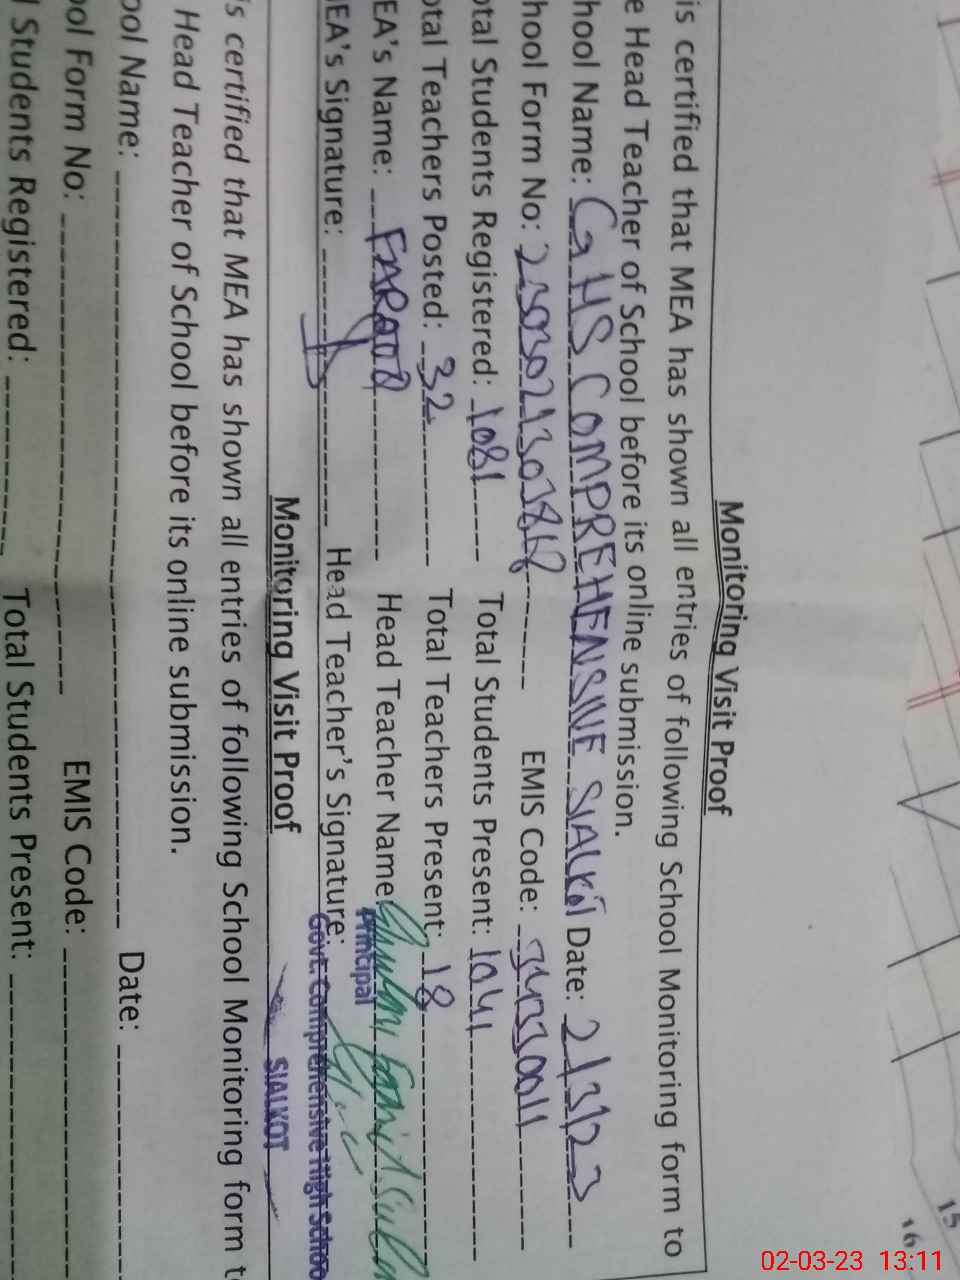 Monitoring Visit Proof
is certified that MEA has shown all entries of following School Monitoring form to
e Head Teacher of School before its online submission.
hool Name: GHS COMPREHENSIVE SIALKOT Date: 2/3/23
hool Form No: EMIS Code:
otal Students Registered: 1081 Total Students Present: 1041
otal Teachers Posted: 32 Total Teachers Present: 18
EA's Name: FAROOQ Head Teacher Name:
EA's Signature: Head Teacher's Signature:
Principal
Govt. Comprehensive High Schoo
SIALKOT
Monitoring Visit Proof
is certified that MEA has shown all entries of following School Monitoring form t
Head Teacher of School before its online submission.
ool Name: Date:
ool Form No: EMIS Code:
l Students Registered: Total Students Present:
15
16
02-03-23 13:11